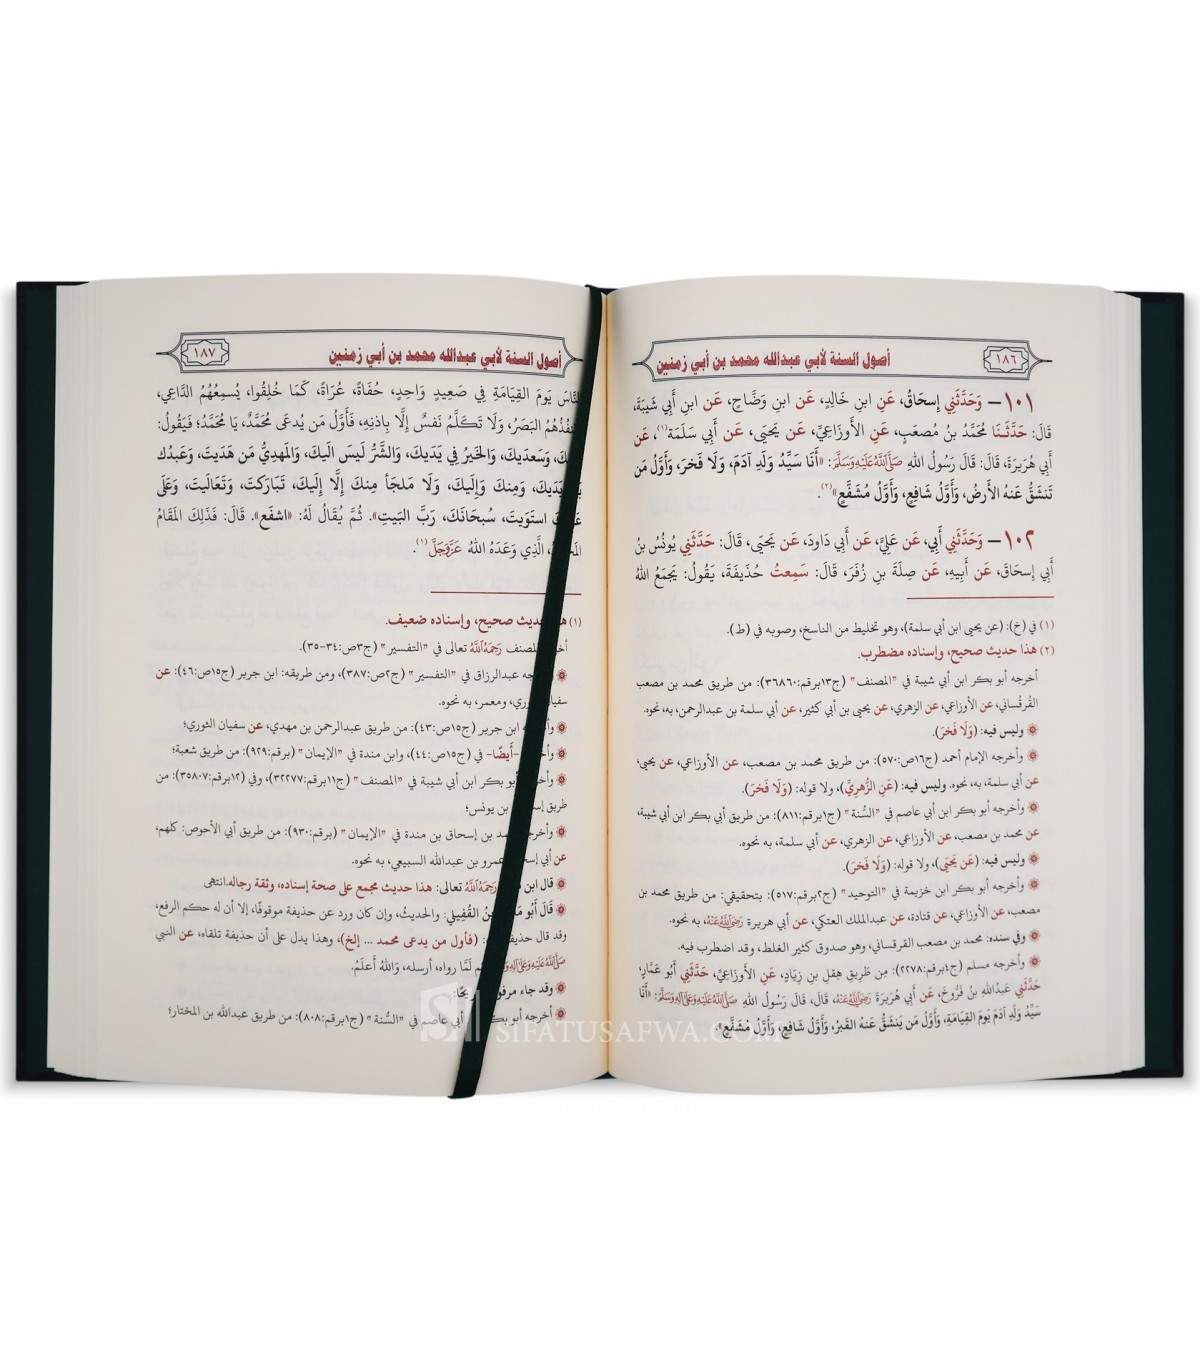 ١٨٦
أصول السنة لأبي عبدالله محمد بن أبي زمنين
١٠١ – وَحَدَّثَنِي إِسحَاقُ، عَنِ ابنِ خَالِدٍ، عَن ابنِ وَضَّاحٍ، عَن ابنِ أَبِي شَيبَةَ،
قَالَ: حَدَّثَـنَا مُحَمَّدُ بنُ مُصعَبٍ، عَنِ الأَوزَاعِيِّ، عَن يَحيَى، عَن أَبِي سَلَمَةَ(١)، عَن
أَبِي هُرَيرَةَ، قَالَ: قَالَ رَسُولُ اللهِ صَلَّى اللَّهُ عَلَيْهِ وَسَلَّمَ: «أَنَا سَيِّدُ وَلَدِ آدَمَ، وَلَا فَخرَ، وَأَوَّلُ مَن
تَنشَقُّ عَنهُ الأَرضُ، وَأَوَّلُ شَافِعٍ، وَأَوَّلُ مُشَفَّعٍ»(٢).
١٠٢ – وَحَدَّثَنِي أَبِي، عَن عَلِيٍّ، عَن أَبِي دَاودَ، عَن يَحيَى، قَالَ: حَدَّثَنِي يُونُسُ بنُ
أَبِي إِسحَاقَ، عَن أَبِيهِ، عَن صِلَةَ بنِ زُفَرَ، قَالَ: سَمِعتُ حُذَيفَةَ، يَقُولُ: يَجمَعُ اللهُ
(١) في (خ): (عن يحيى ابن أبي سلمة)، وهو تخليط من الناسخ، وصوبه في (ط).
(٢) هذا حديث صحيح، وإسناده مضطرب.
أخرجه أبو بكر ابن أبي شيبة في "المصنف" (ج١٣برقم:٣٦٨٦٠): من طريق محمد بن مصعب
القُرقُساني، عن الأوزاعي، عن الزهري، عن يحيى بن أبي كثير، عن أبي سلمة بن عبدالرحمن، به نحوه.
وليس فيه: (وَلَا فَخرَ).
وأخرجه الإمام أحمد (ج١٦ص:٥٧٠): من طريق محمد بن مصعب، عن الأوزاعي، عن يحيى،
عن أبي سلمة، به نحوه. وليس فيه: (عَنِ الزُّهرِيِّ)، ولا قوله: (وَلَا فَخرَ).
وأخرجه أبو بكر ابن أبي عاصم في "السُّنة" (ج١برقم:٨١١): من طريق أبي بكر ابن أبي شيبة،
عن محمد بن مصعب، عن الأوزاعي، عن الزهري، عن أبي سلمة، به نحوه.
وليس فيه: (عَن يَحيَى)، ولا قوله: (وَلَا فَخرَ).
وأخرجه أبو بكر ابن خزيمة في "التوحيد" (ج٢برقم:٥١٧): بتحقيقي: من طريق محمد بن
مصعب، عن الأوزاعي، عن قتادة، عن عبدالملك العتكي، عن أبي هريرة رَضِيَ اللَّهُ عَنْهُ، به نحوه.
وفي سنده: محمد بن مصعب القرقساني، وهو صدوق كثير الغلط، وقد اضطرب فيه.
وأخرجه مسلم (ج٤برقم:٢٢٧٨): مِن طَرِيقِ هِقلِ بنِ زِيَادٍ، عَنِ الأَوزَاعِيِّ، حَدَّثَنِي أَبُو عَمَّارٍ،
حَدَّثَنِي عَبدُاللهِ بنُ فَرُّوخَ، عَن أَبِي هُرَيرَةَ رَضِيَ اللَّهُ عَنْهُ، قَالَ، قَالَ رَسُولُ اللهِ صَلَّى اللَّهُ عَلَيْهِ وَعَلَى آلِهِ وَسَلَّمَ: «أَنَا
سَيِّدُ وَلَدِ آدَمَ يَومَ القِيَامَةِ، وَأَوَّلُ مَن يَنشَقُّ عَنهُ القَبرُ، وَأَوَّلُ شَافِعٍ، وَأَوَّلُ مُشَفَّعٍ».
أصول السنة لأبي عبدالله محمد بن أبي زمنين
١٨٧
النَّاسَ يَومَ القِيَامَةِ فِي صَعِيدٍ وَاحِدٍ، حُفَاةً، عُرَاةً، كَمَا خُلِقُوا، يُسمِعُهُمُ الدَّاعِي،
البَصَرُ، وَلَا تَكَلَّمُ نَفسٌ إِلَّا بِإِذنِهِ، فَأَوَّلُ مَن يُدعَى مُحَمَّدٌ، يَا مُحَمَّدُ؛ فَيَقُولُ:
وَسَعدَيكَ، وَالخَيرُ فِي يَدَيكَ، وَالشَّرُّ لَيسَ اليكَ، وَالمَهدِيُّ مَن هَدَيتَ، وَعَبدُك
يَدَيكَ، وَمِنكَ وَإِلَيكَ، وَلَا مَلجَأَ مِنكَ إِلَّا إِلَيكَ، تَبَارَكتَ، وَتَعَالَيتَ، وَعَلَى
استَوَيتَ، سُبحَانَكَ، رَبَّ البَيتِ». ثُمَّ يُقَالُ لَهُ: «اشفَع». قَالَ: فَذَلِكَ المَقَامُ
الَّذِي وَعَدَهُ اللهُ عَزَّ وَجَلَّ(١).
(١) حديث صحيح، وإسناده ضعيف.
المصنف رَحِمَهُ اللَّهُ تعالى في "التفسير" (ج٣ص:٣٤-٣٥).
عبدالرزاق في "التفسير" (ج٢ص:٣٨٧)، ومن طريقه: ابن جرير (ج١٥ص:٤٦): عن
سفيان ومعمر، به نحوه.
ابن جرير (ج١٥ص:٤٣): من طريق عبدالرحمن بن مهدي، عن سفيان الثوري؛
-أَيضًا- في (ج١٥ص:٤٤)، وابن مندة في "الإيمان" (برقم:٩٢٩): من طريق شعبة؛
أبو بكر ابن أبي شيبة في "المصنف" (ج١١برقم:٣٢٢٧٧)، وفي (١٢برقم:٣٥٨٠٧): من
طريق بن يونس؛
بن إسحاق بن مندة في "الإيمان" (برقم:٩٣٠): من طريق أبي الأحوص: كلهم،
عن أبي عمرو بن عبدالله السبيعي، به نحوه.
قال ابن رَحِمَهُ اللَّهُ تعالى: هذا حديث مجمع على صحة إسناده، وثقة رجاله.انتهى
قَالَ أَبُو بنُ القُفِيلِ: والحديثُ، وإن كان ورد عن حذيفة موقوفًا، إلا أن له حكم الرفع،
وقد قال (فأول من يدعى محمد ... إلخ)، وهذا يدل على أن حذيفة تلقاه، عن النبي
صَلَّى اللَّهُ عَلَيْهِ وَعَلَى آلِهِ لَمَّا رواه، أرسله، وَاللهُ أَعلَمُ.
وقد جاء
أخرجه أبو أبي عاصم في "السُّنة" (ج١برقم:٨٠٨): من طريق عبدالله بن المختار؛
SIFATUSAFWA.COM